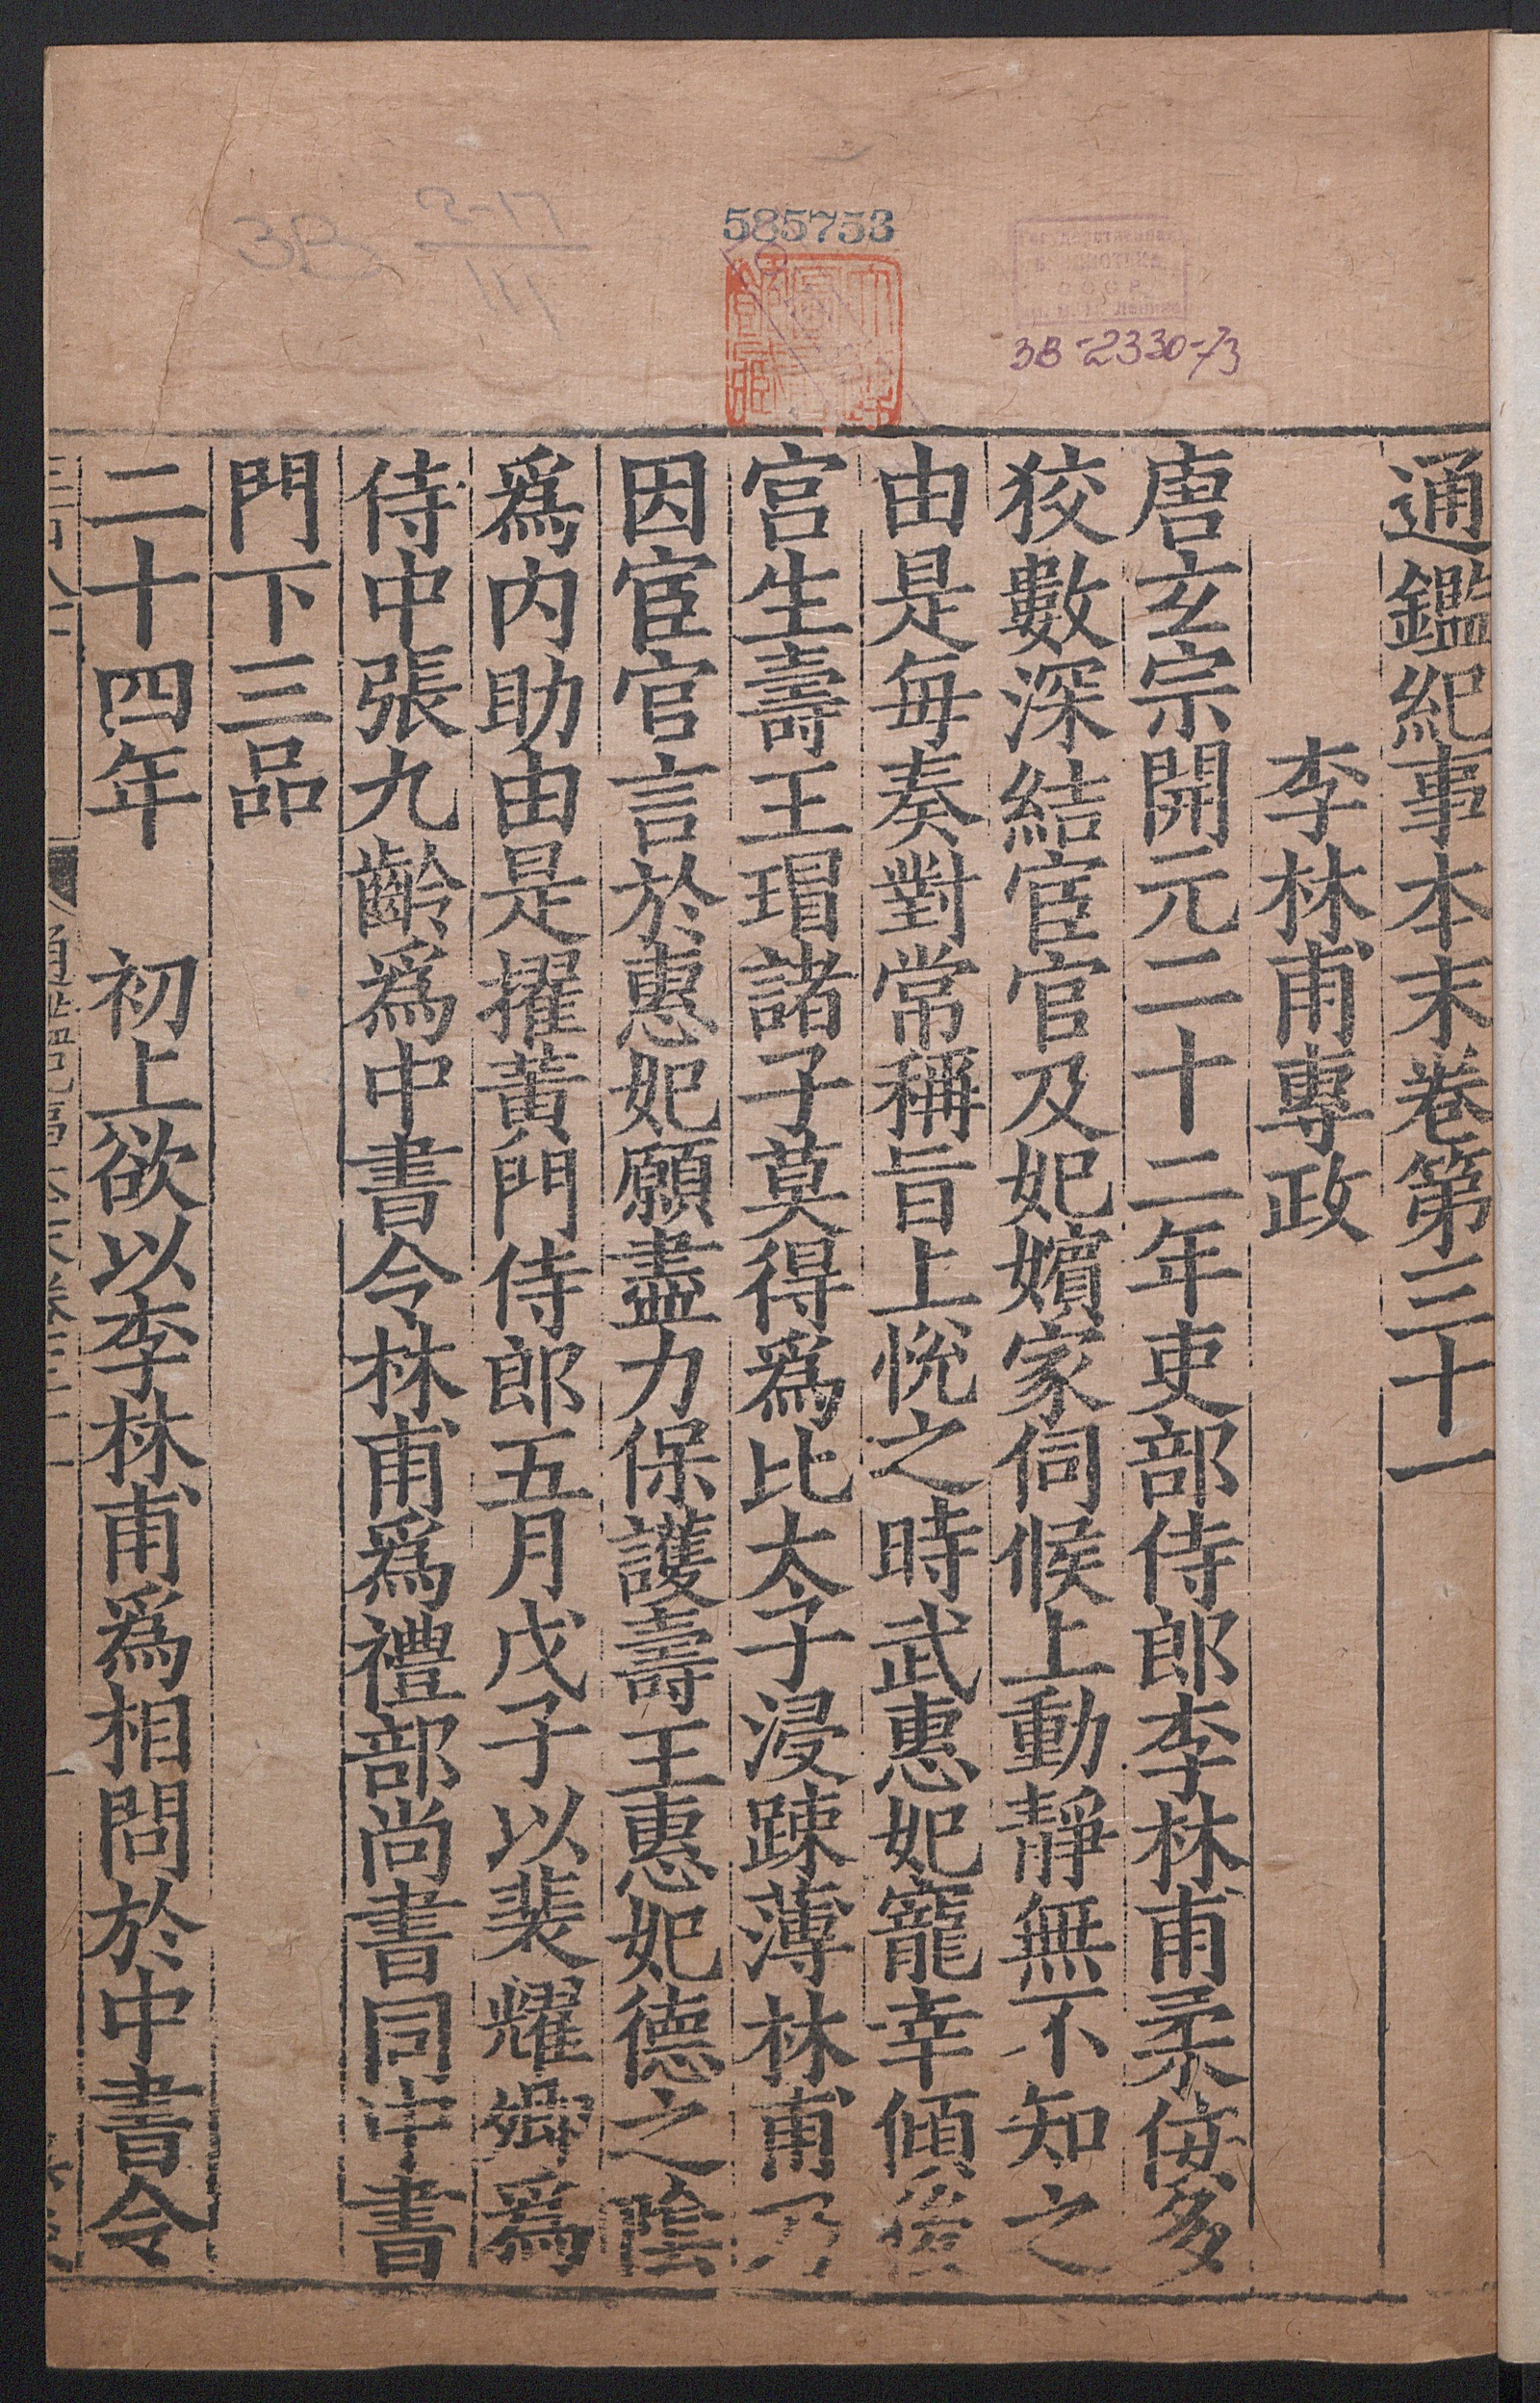 585753
3В 2-17
111
3В-2330-73
通鑑紀事本末卷第三十一
李林甫專政
唐玄宗開元二十二年吏部侍郎李林甫柔佞多
狡數深結宦官及妃嬪家伺候上動靜無不知之
由是每奏對常稱旨上悅之時武惠妃寵幸傾後
宮生壽王瑁諸子莫得爲比太子浸踈薄林甫乃
因宦官言於惠妃願盡力保護壽王惠妃德之陰
爲内助由是擢黃門侍郎五月戊子以裴耀卿爲
侍中張九齡爲中書令林甫爲禮部尚書同中書
門下三品
二十四年 初上欲以李林甫爲相問於中書令